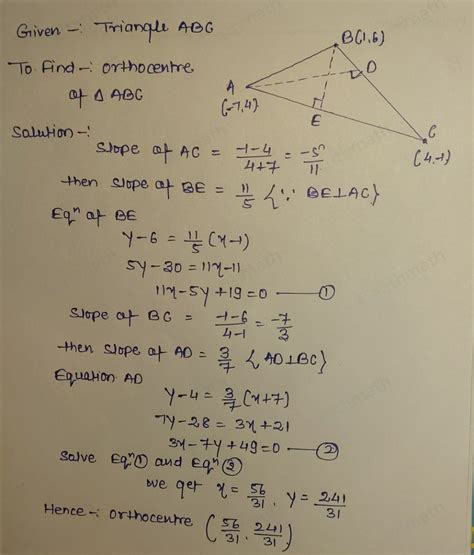 Given -: Triangle ABC
To Find -: orthocentre
of △ ABC
B(1,6)
D
A
(-7,4)
E
C
(4,-1)
Solution -:
Slope of AC = -1-4/4+7 = -5/11
then slope of BE = 11/5 {∵ BE⊥AC}
Eqⁿ of BE
y-6 = 11/5 (x-1)
5y-30 = 11x-11
11x-5y+19=0 — ①
Slope of BC = -1-6/4-1 = -7/3
then slope of AD = 3/7 {AD⊥BC}
Equation AD
y-4 = 3/7 (x+7)
7y-28 = 3x+21
3x-7y+49=0 — ②
Solve Eqⁿ① and Eqⁿ②
we get x = 56/31, y = 241/31
Hence -: orthocentre (56/31, 241/31)